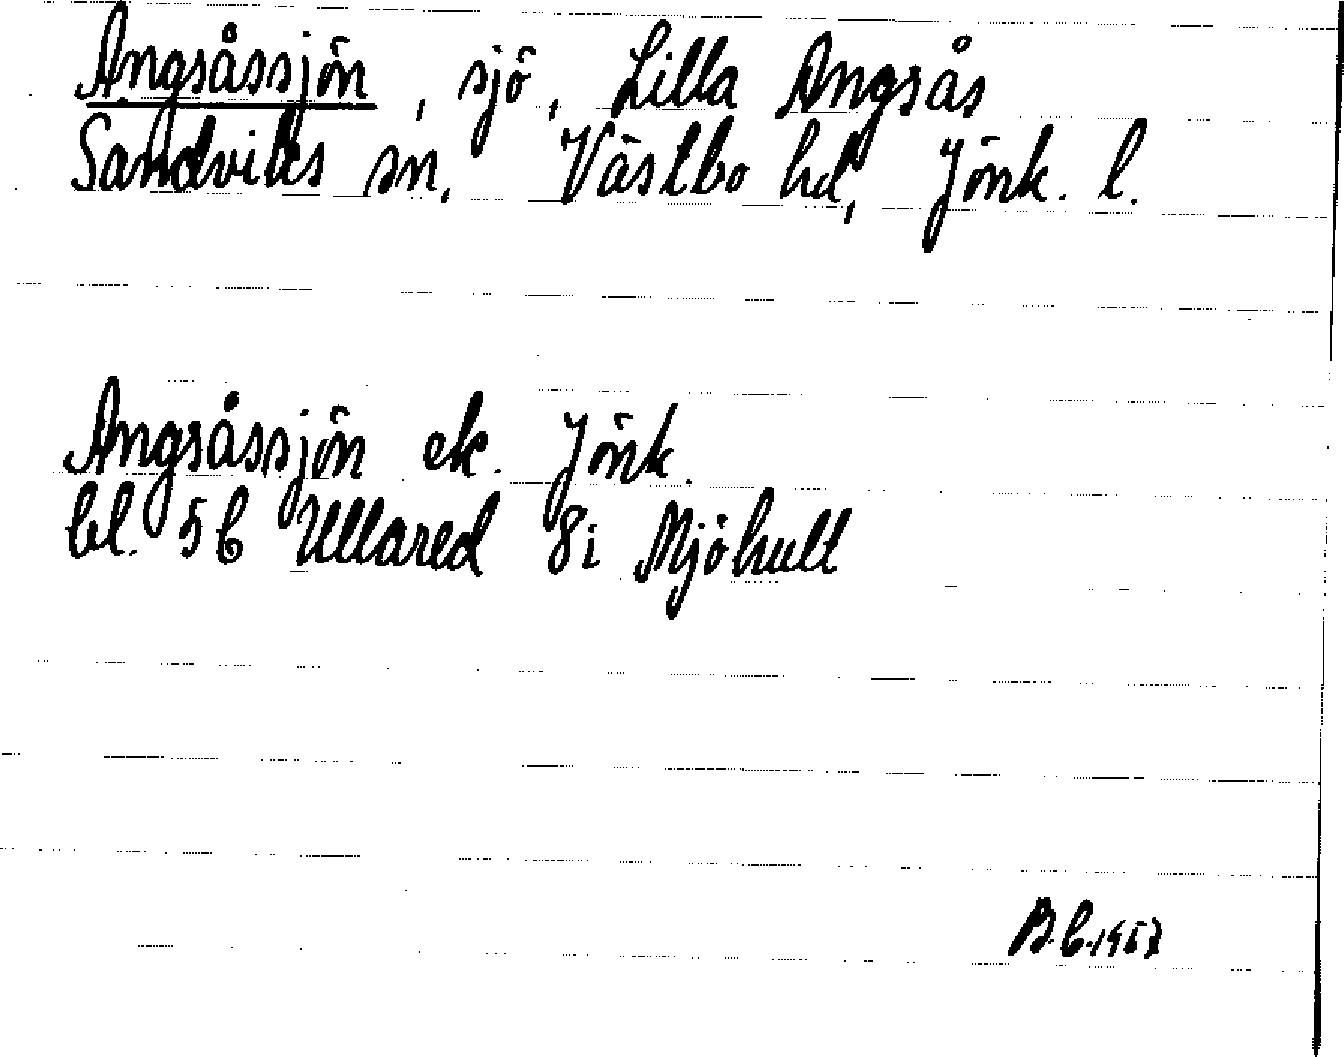 Angsåssjön, sjö, Lilla Angsås
Sandviks sn, Västbo hd, Jönk. l.
Angsåssjön ek. Jönk.
bl. 5C Ullared 8i Mjöhult
B.C. 1967